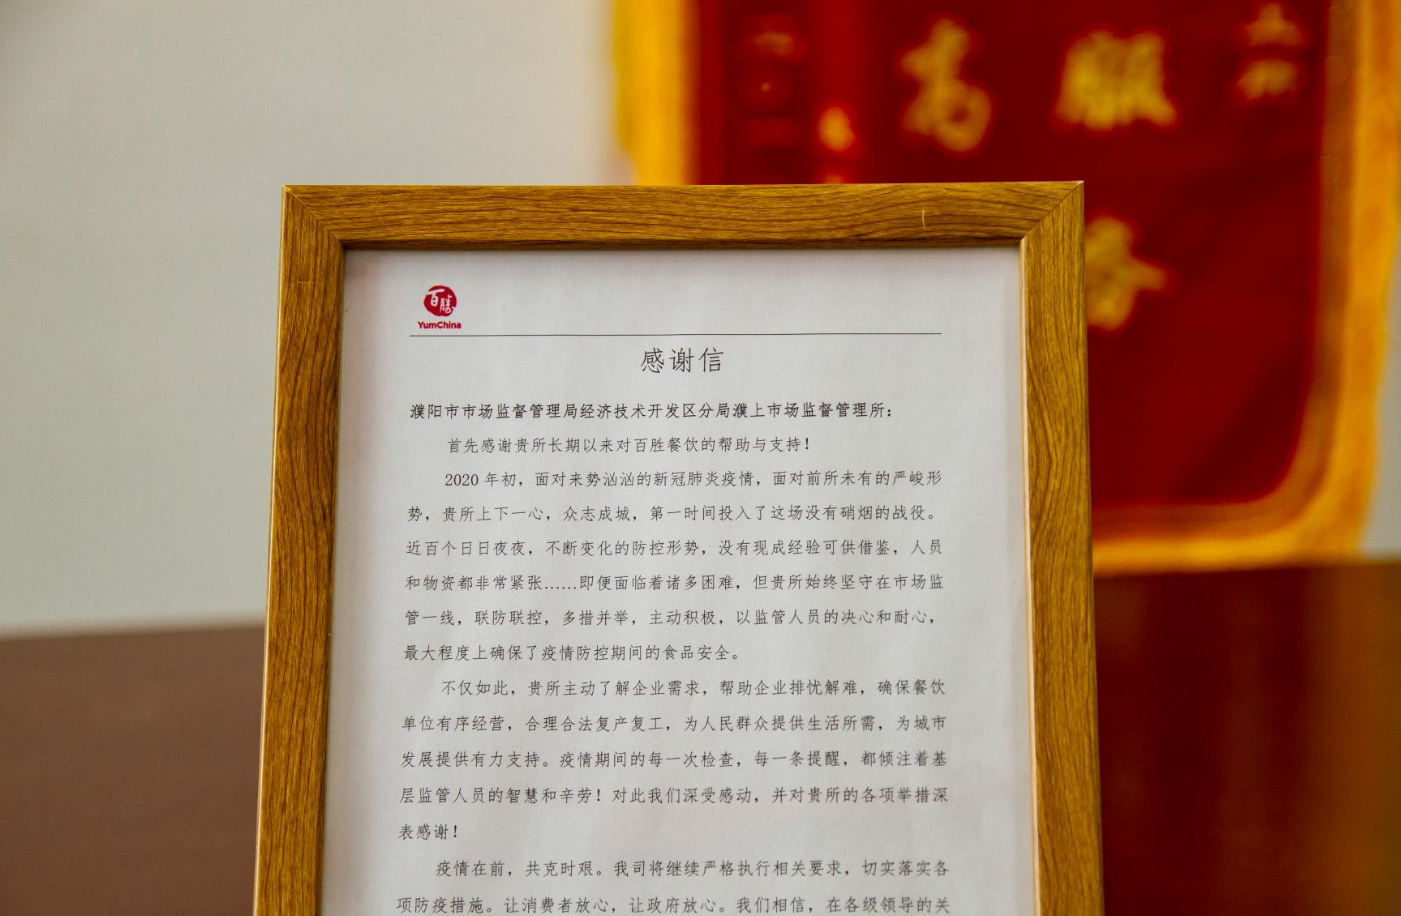 百勝
YumChina
感谢信
濮阳市市场监督管理局经济技术开发区分局濮上市场监督管理所：
首先感谢贵所长期以来对百胜餐饮的帮助与支持！
2020 年初，面对来势汹汹的新冠肺炎疫情，面对前所未有的严峻形
势，贵所上下一心，众志成城，第一时间投入了这场没有硝烟的战役。
近百个日日夜夜，不断变化的防控形势，没有现成经验可供借鉴，人员
和物资都非常紧张……即便面临着诸多困难，但贵所始终坚守在市场监
管一线，联防联控，多措并举，主动积极，以监管人员的决心和耐心，
最大程度上确保了疫情防控期间的食品安全。
不仅如此，贵所主动了解企业需求，帮助企业排忧解难，确保餐饮
单位有序经营，合理合法复产复工，为人民群众提供生活所需，为城市
发展提供有力支持。疫情期间的每一次检查，每一条提醒，都倾注着基
层监管人员的智慧和辛劳！对此我们深受感动，并对贵所的各项举措深
表感谢！
疫情在前，共克时艰。我司将继续严格执行相关要求，切实落实各
项防疫措施。让消费者放心，让政府放心。我们相信，在各级领导的关
高 服